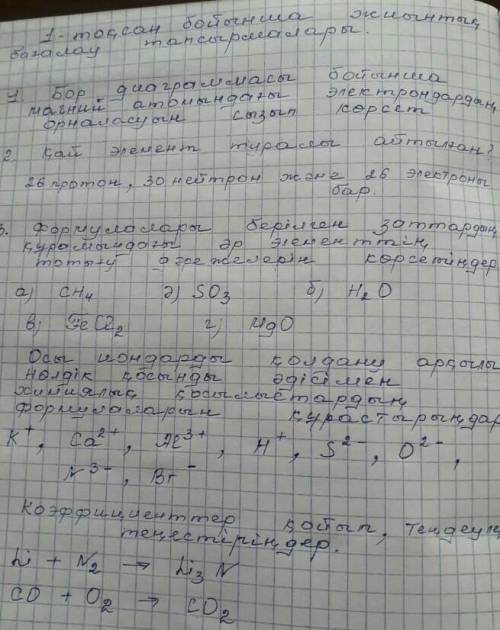 1-тоқсан бойынша жиынтық
бағалау тапсырмалары.
1. Бор диаграммасы бойынша
магний атомындағы электрондардың
орналасуын сызып көрсет
2. Қай элемент туралы айтылған?
26 протон, 30 нейтрон және 26 электроны
бар.
3. Формулалары берілген заттардың
құрамындағы әр элементтің
тотығу дәрежелерін көрсетіңдер
а) CH₄ ә) SO₃ б) H₂O
в) FeCl₂ г) MgO
Осы иондарды қолдану арқылы
нөлдік қосынды әдісімен
химиялық қосылыстардың
формулаларын құрастырыңдар
K⁺, Ca²⁺, Al³⁺, H⁺, S²⁻, O²⁻,
N³⁻, Br⁻
Коэффициенттер қойып, теңдеуін
теңестіріңдер.
Li + N₂ → Li₃N
CO + O₂ → CO₂